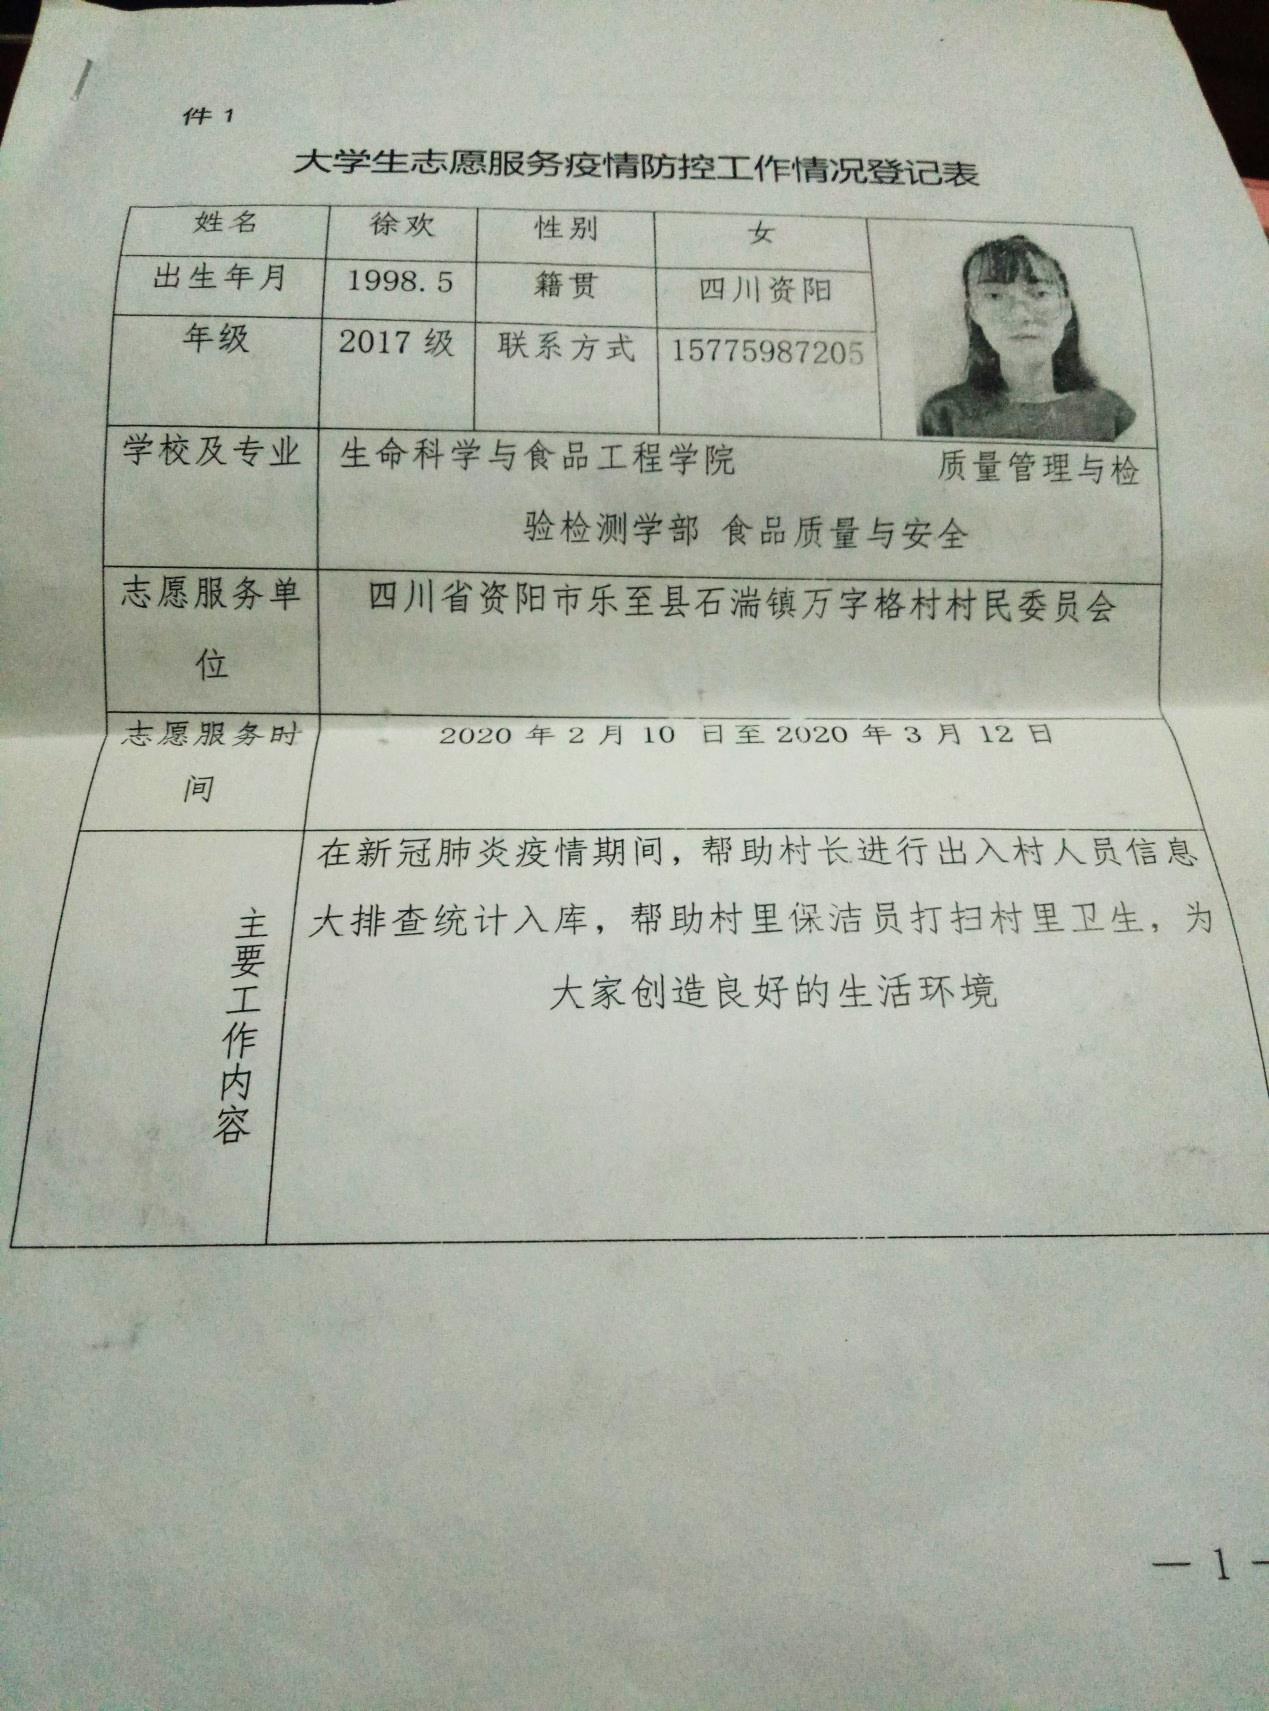 件 1
大学生志愿服务疫情防控工作情况登记表
姓名 徐欢 性别 女
出生年月 1998.5 籍贯 四川资阳
年级 2017 级 联系方式 15775987205
学校及专业 生命科学与食品工程学院 质量管理与检
验检测学部 食品质量与安全
志愿服务单 四川省资阳市乐至县石湍镇万字格村村民委员会
位
志愿服务时 2020 年 2 月 10 日至 2020 年 3 月 12 日
间
主要工作内容
在新冠肺炎疫情期间，帮助村长进行出入村人员信息
大排查统计入库，帮助村里保洁员打扫村里卫生，为
大家创造良好的生活环境
— 1 —